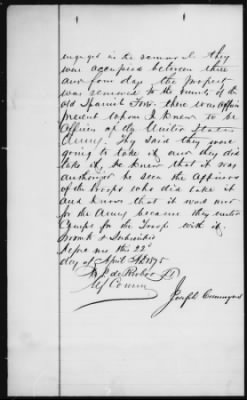 engaged in the removal they
was occupied between three
and four days the property
was removed to the vicinity of the
old Spanish Fort. there was officers
present whom I knew to be
Officers of the United States
Army. They said they were
going to take it and they did
take it, he knew that it was
he seen the Officers
of the troops who did take it
and knows that it was used
for the Army because they under
Camps for the Troops with it.
Sworn & Subscribed
before me this 22d
day of April AD 1875
US Comm
Joseph